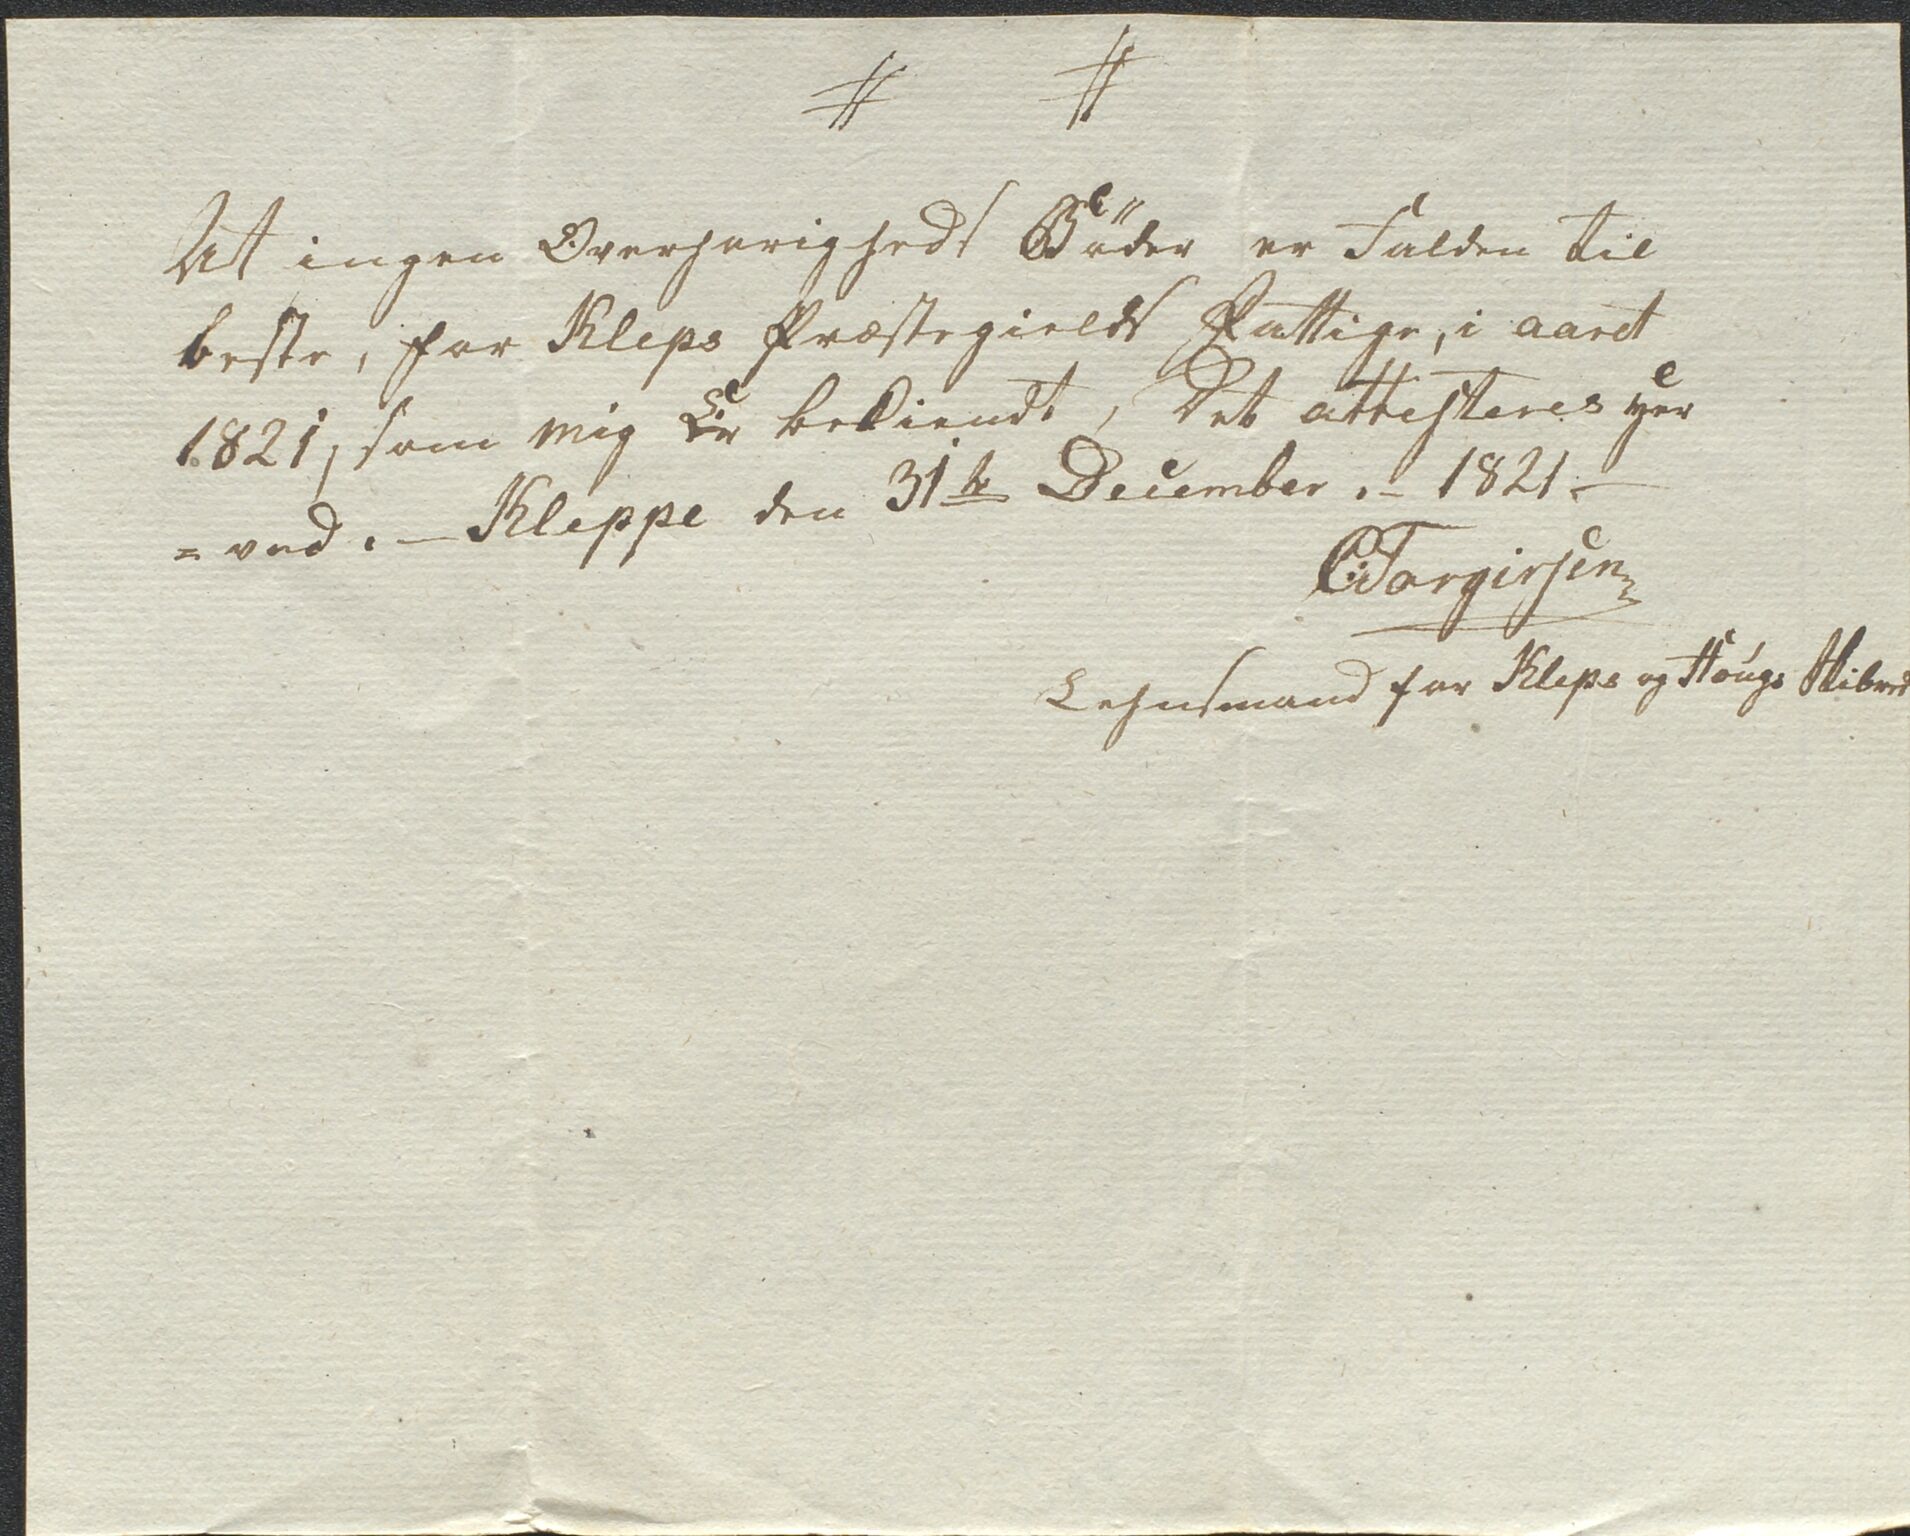 At ingen Overhørigheds Bøder er Falden til
beste, for Kleps Præstegields Fattige, i aaret
1821, som mig Er bekiendt, Det attesteres her
= ved. — Kleppe den 31te December. – 1821. —
CTorgirsen
Lehnsmand for Kleps og Hougs Skibred